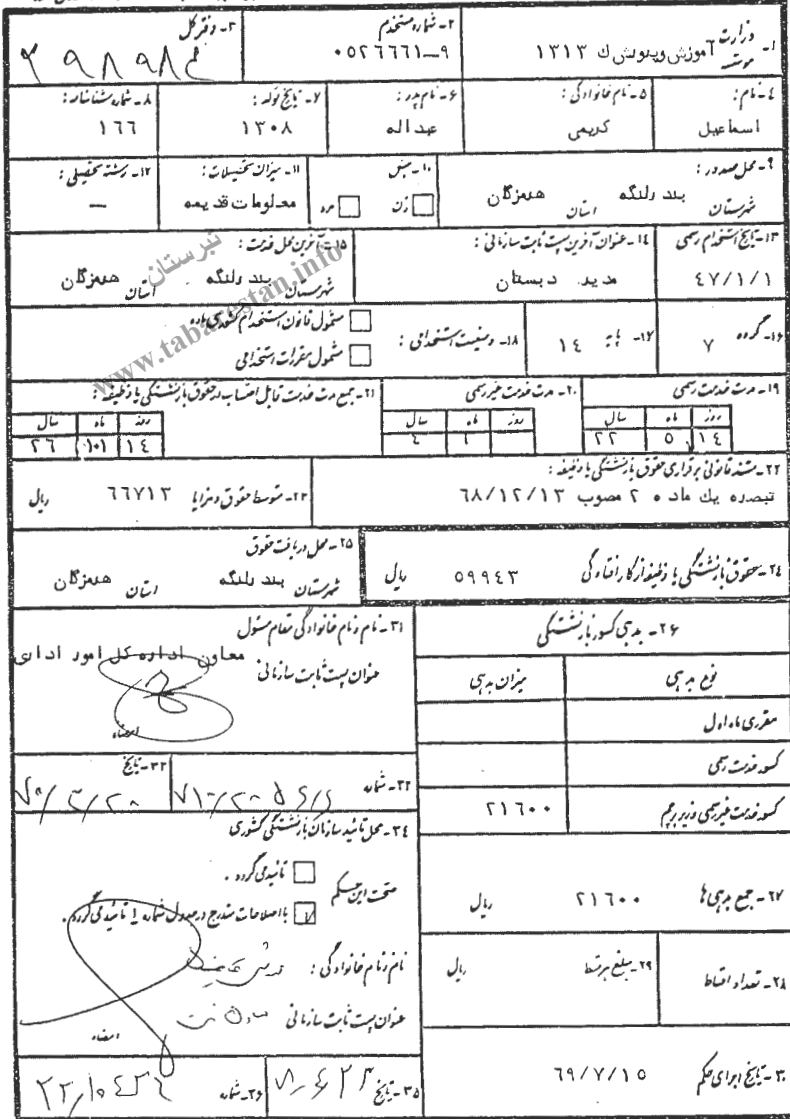 ۱- وزارت آموزش و پرورش ك ۱۳۱۳
موسسه
۲- شماره مستخدم
۰۵۲۶۶۶۱-۹
۳- دفتر کل
۴- نام :
اسماعیل
۵- نام خانوادگی :
کریمی
۶- نام پدر :
عبداله
۷- تاریخ تولد :
۱۳۰۸
۸- شماره شناسنامه :
۱۶۶
۹- محل صدور :
شهرستان بندرلنگه استان هرمزگان
۱۰- جنس
زن مرد
۱۱- میزان تحصیلات :
معلومات قدیمه
۱۲- رشته تحصیلی :
—
۱۳- تاریخ استخدام رسمی
۴۷/۱/۱
۱۴- عنوان آخرین پست ثابت سازمانی :
مدیر دبستان
۱۵- آخرین محل خدمت :
شهرستان بندرلنگه استان هرمزگان
تبرستان
www.tabarestan.info
۱۶- گروه ۷
۱۷- پایه ۱۴
۱۸- وضعیت استخدامی :
مشمول قانون استخدام کشوری ماده
مشمول مقررات استخدامی
۱۹- مدت خدمت رسمی
روز ماه سال
۱۴ ۵ ۲۲
۲۰- مدت خدمت غیر رسمی
روز ماه سال
۴
۲۱- جمع مدت خدمت قابل احتساب در حقوق بازنشستگی یا وظیفه :
روز ماه سال
۱۴ ۲۶
۲۲- مستند قانونی برقراری حقوق بازنشستگی یا وظیفه :
تبصره یك ماده ۲ مصوب ۶۸/۱۲/۱۳
۲۳- متوسط حقوق و مزایا ۶۶۷۱۳ ریال
۲۴- حقوق بازنشستگی یا وظیفه از کار افتادگی ۵۹۹۴۳ ریال
۲۵- محل دریافت حقوق
شهرستان بندرلنگه استان هرمزگان
۲۶- بدهی کسور بازنشستگی
نوع بدهی میزان بدهی
مقرری ماه اول
کسور خدمت رسمی
کسور خدمت غیر رسمی و زیر پرچم ۲۱۶۰۰
۲۷- جمع بدهی ها ۲۱۶۰۰ ریال
۲۸- تعداد اقساط
۲۹- مبلغ هر قسط ریال
۳۰- تاریخ اجرای حکم ۶۹/۷/۱۵
۳۱- نام و نام خانوادگی مقام مسئول
معاون اداره کل امور اداری
عنوان پست ثابت سازمانی
امضاء
۳۲- شماره
۳۳- تاریخ
۳۴- محل تائید سازمان بازنشستگی کشوری
صحت این حکم
تائید می گردد .
با اصلاحات مندرج در جدول شماره ۱ تائید می گردد .
نام و نام خانوادگی :
عنوان پست ثابت سازمانی
امضاء
۳۵- تاریخ
۳۶- شماره